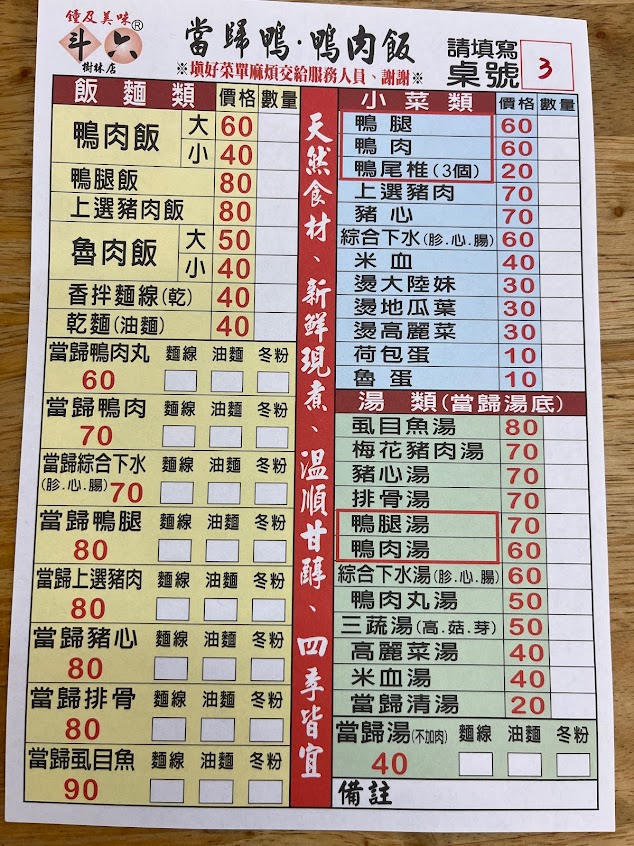 鐘及美味®
斗六
樹林店
當歸鴨·鴨肉飯
※填好菜單麻煩交給服務人員、謝謝※
請填寫
桌號
3
飯麵類 價格 數量
鴨肉飯 大 60
小 40
鴨腿飯 80
上選豬肉飯 80
魯肉飯 大 50
小 40
香拌麵線(乾) 40
乾麵(油麵) 40
當歸鴨肉丸 麵線 油麵 冬粉
60
當歸鴨肉 麵線 油麵 冬粉
70
當歸綜合下水 麵線 油麵 冬粉
(胗.心.腸) 70
當歸鴨腿 麵線 油麵 冬粉
80
當歸上選豬肉 麵線 油麵 冬粉
80
當歸豬心 麵線 油麵 冬粉
80
當歸排骨 麵線 油麵 冬粉
80
當歸虱目魚 麵線 油麵 冬粉
90
天然食材、新鮮現煮、溫順甘醇、四季皆宜
小菜類 價格 數量
鴨腿 60
鴨肉 60
鴨尾椎(3個) 20
上選豬肉 70
豬心 70
綜合下水(胗.心.腸) 60
米血 40
燙大陸妹 30
燙地瓜葉 30
燙高麗菜 30
荷包蛋 10
魯蛋 10
湯類(當歸湯底)
虱目魚湯 80
梅花豬肉湯 70
豬心湯 70
排骨湯 70
鴨腿湯 70
鴨肉湯 60
綜合下水湯(胗.心.腸) 60
鴨肉丸湯 50
三蔬湯(高.菇.芽) 50
高麗菜湯 40
米血湯 40
當歸清湯 20
當歸湯(不加肉) 麵線 油麵 冬粉
40
備註